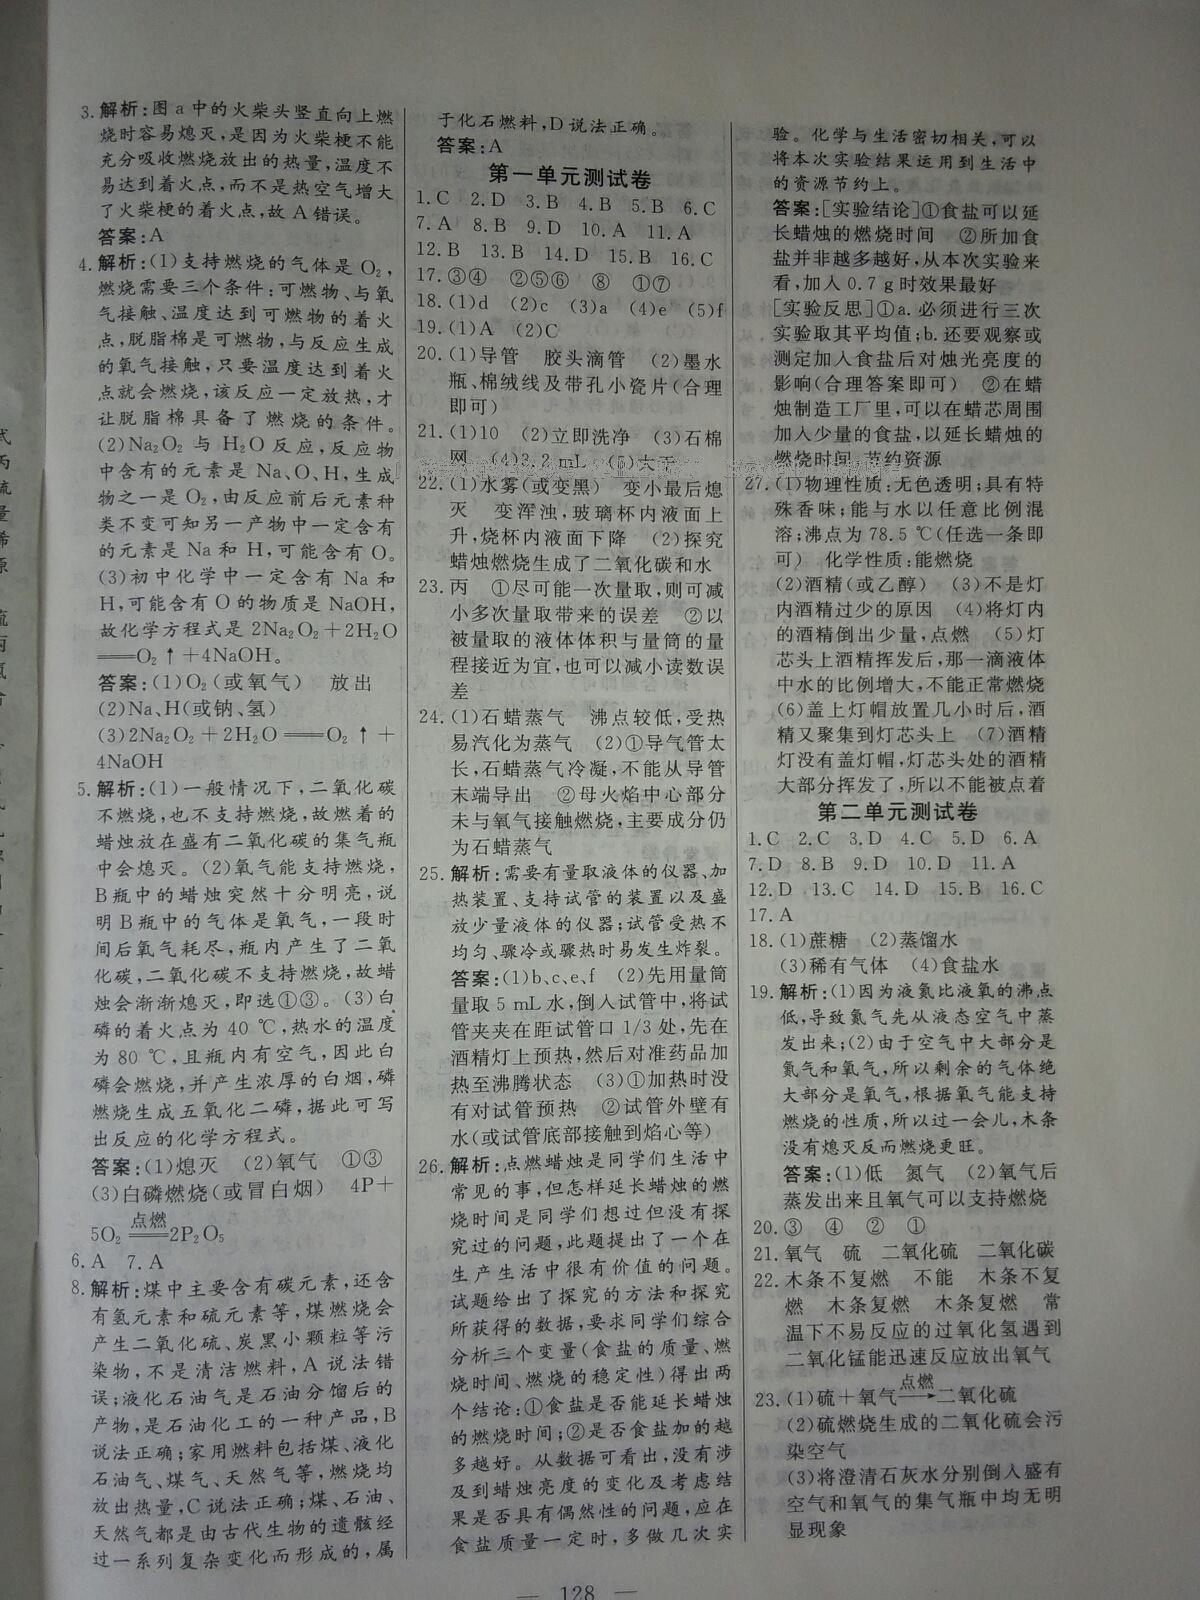 3. 解析:图 a 中的火柴头竖直向上燃
烧时容易熄灭,是因为火柴梗不能
充分吸收燃烧放出的热量,温度不
易达到着火点,而不是热空气增大
了火柴梗的着火点,故 A 错误。
答案:A
4. 解析:(1)支持燃烧的气体是 O₂,
燃烧需要三个条件:可燃物、与氧
气接触、温度达到可燃物的着火
点,脱脂棉是可燃物,与反应生成
的氧气接触,只要温度达到着火
点就会燃烧,该反应一定放热,才
让脱脂棉具备了燃烧的条件。
(2)Na₂O₂ 与 H₂O 反应,反应物
中含有的元素是 Na、O、H,生成
物之一是 O₂,由反应前后元素种
类不变可知另一产物中一定含有
的元素是 Na 和 H,可能含有 O。
(3)初中化学中一定含有 Na 和
H,可能含有 O 的物质是 NaOH,
故化学方程式是 2Na₂O₂+2H₂O
══O₂↑+4NaOH。
答案:(1)O₂(或氧气) 放出
(2)Na、H(或钠、氢)
(3)2Na₂O₂+2H₂O══O₂↑+
4NaOH
5. 解析:(1)一般情况下,二氧化碳
不燃烧,也不支持燃烧,故燃着的
蜡烛放在盛有二氧化碳的集气瓶
中会熄灭。(2)氧气能支持燃烧,
B 瓶中的蜡烛突然十分明亮,说
明 B 瓶中的气体是氧气,一段时
间后氧气耗尽,瓶内产生了二氧
化碳,二氧化碳不支持燃烧,故蜡
烛会渐渐熄灭,即选①③。(3)白
磷的着火点为 40 ℃,热水的温度
为 80 ℃,且瓶内有空气,因此白
磷会燃烧,并产生浓厚的白烟,磷
燃烧生成五氧化二磷,据此可写
出反应的化学方程式。
答案:(1)熄灭 (2)氧气 ①③
(3)白磷燃烧(或冒白烟) 4P+
5O₂ 点燃══ 2P₂O₅
6. A 7. A
8. 解析:煤中主要含有碳元素,还含
有氢元素和硫元素等,煤燃烧会
产生二氧化硫、炭黑小颗粒等污
染物,不是清洁燃料,A 说法错
误;液化石油气是石油分馏后的
产物,是石油化工的一种产品,B
说法正确;家用燃料包括煤、液化
石油气、煤气、天然气等,燃烧均
放出热量,C 说法正确;煤、石油、
天然气都是由古代生物的遗骸经
过一系列复杂变化而形成的,属
于化石燃料,D 说法正确。
答案:A
第一单元测试卷
1. C 2. D 3. B 4. B 5. B 6. C
7. A 8. B 9. D 10. A 11. A
12. B 13. B 14. D 15. B 16. C
17. ③④ ②⑤⑥ ⑧ ①⑦
18. (1)d (2)c (3)a (4)e (5)f
19. (1)A (2)C
20. (1)导管 胶头滴管 (2)墨水
瓶、棉绒线及带孔小瓷片(合理
即可)
21. (1)10 (2)立即洗净 (3)石棉
网 (4)3.2 mL (5)大于
22. (1)水雾(或变黑) 变小最后熄
灭 变浑浊,玻璃杯内液面上
升,烧杯内液面下降 (2)探究
蜡烛燃烧生成了二氧化碳和水
23. 丙 ①尽可能一次量取,则可减
小多次量取带来的误差 ②以
被量取的液体体积与量筒的量
程接近为宜,也可以减小读数误
差
24. (1)石蜡蒸气 沸点较低,受热
易汽化为蒸气 (2)①导气管太
长,石蜡蒸气冷凝,不能从导管
末端导出 ②母火焰中心部分
未与氧气接触燃烧,主要成分仍
为石蜡蒸气
25. 解析:需要有量取液体的仪器、加
热装置、支持试管的装置以及盛
放少量液体的仪器;试管受热不
均匀、骤冷或骤热时易发生炸裂。
答案:(1)b、c、e、f (2)先用量筒
量取 5 mL 水,倒入试管中,将试
管夹夹在距试管口 1/3 处,先在
酒精灯上预热,然后对准药品加
热至沸腾状态 (3)①加热时没
有对试管预热 ②试管外壁有
水(或试管底部接触到焰心等)
26. 解析:点燃蜡烛是同学们生活中
常见的事,但怎样延长蜡烛的燃
烧时间是同学们想过但没有探
究过的问题,此题提出了一个在
生产生活中很有价值的问题。
试题给出了探究的方法和探究
所获得的数据,要求同学们综合
分析三个变量(食盐的质量、燃
烧时间、燃烧的稳定性)得出两
个结论:①食盐是否能延长蜡烛
的燃烧时间;②是否食盐加的越
多越好。从数据可看出,没有涉
及到蜡烛亮度的变化及考虑结
果是否具有偶然性的问题,应在
食盐质量一定时,多做几次实
验。化学与生活密切相关,可以
将本次实验结果运用到生活中
的资源节约上。
答案:[实验结论]①食盐可以延
长蜡烛的燃烧时间 ②所加食
盐并非越多越好,从本次实验来
看,加入 0.7 g 时效果最好
[实验反思]①a. 必须进行三次
实验取其平均值;b. 还要观察或
测定加入食盐后对烛光亮度的
影响(合理答案即可) ②在蜡
烛制造工厂里,可以在蜡芯周围
加入少量的食盐,以延长蜡烛的
燃烧时间 节约资源
27. (1)物理性质:无色透明;具有特
殊香味;能与水以任意比例混
溶;沸点为 78.5 ℃(任选一条即
可) 化学性质:能燃烧
(2)酒精(或乙醇) (3)不是灯
内酒精过少的原因 (4)将灯内
的酒精倒出少量,点燃 (5)灯
芯头上酒精挥发后,那一滴液体
中水的比例增大,不能正常燃烧
(6)盖上灯帽放置几小时后,酒
精又聚集到灯芯头上 (7)酒精
灯没有盖灯帽,灯芯头处的酒精
大部分挥发了,所以不能被点着
第二单元测试卷
1. C 2. C 3. D 4. C 5. D 6. A
7. D 8. B 9. D 10. D 11. A
12. D 13. C 14. D 15. B 16. C
17. A
18. (1)蔗糖 (2)蒸馏水
(3)稀有气体 (4)食盐水
19. 解析:(1)因为液氮比液氧的沸点
低,导致氮气先从液态空气中蒸
发出来;(2)由于空气中大部分是
氮气和氧气,所以剩余的气体绝
大部分是氧气,根据氧气能支持
燃烧的性质,所以过一会儿,木条
没有熄灭反而燃烧更旺。
答案:(1)低 氮气 (2)氧气后
蒸发出来且氧气可以支持燃烧
20. ③ ④ ② ①
21. 氧气 硫 二氧化硫 二氧化碳
22. 木条不复燃 不能 木条不复
燃 木条复燃 木条复燃 常
温下不易反应的过氧化氢遇到
二氧化锰能迅速反应放出氧气
23. (1)硫+氧气 点燃→ 二氧化硫
(2)硫燃烧生成的二氧化硫会污
染空气
(3)将澄清石灰水分别倒入盛有
空气和氧气的集气瓶中均无明
显现象
— 128 —